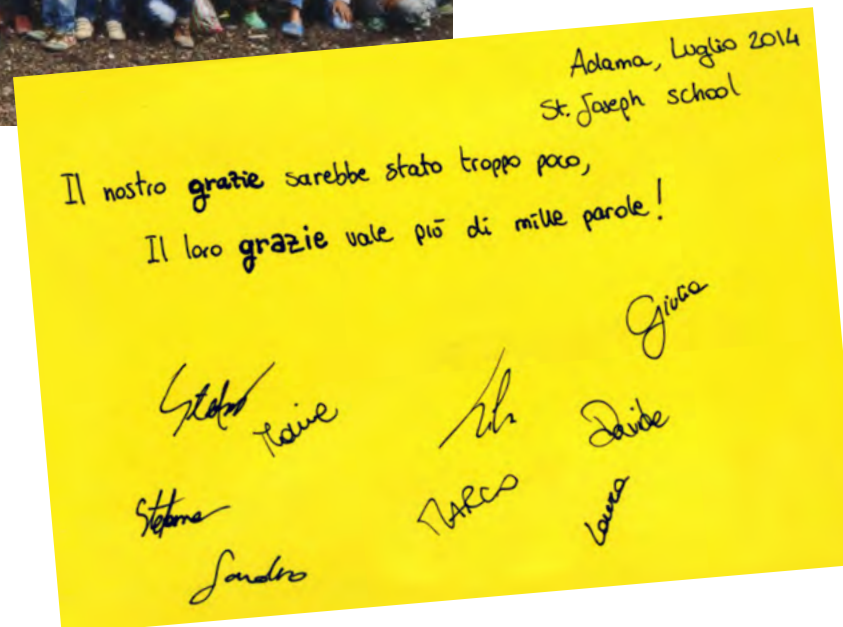 Adama, Luglio 2014
St. Joseph school
Il nostro grazie sarebbe stato troppo poco,
Il loro grazie vale più di mille parole!
Giulia
Davide
MARCO
Laura
Sandro